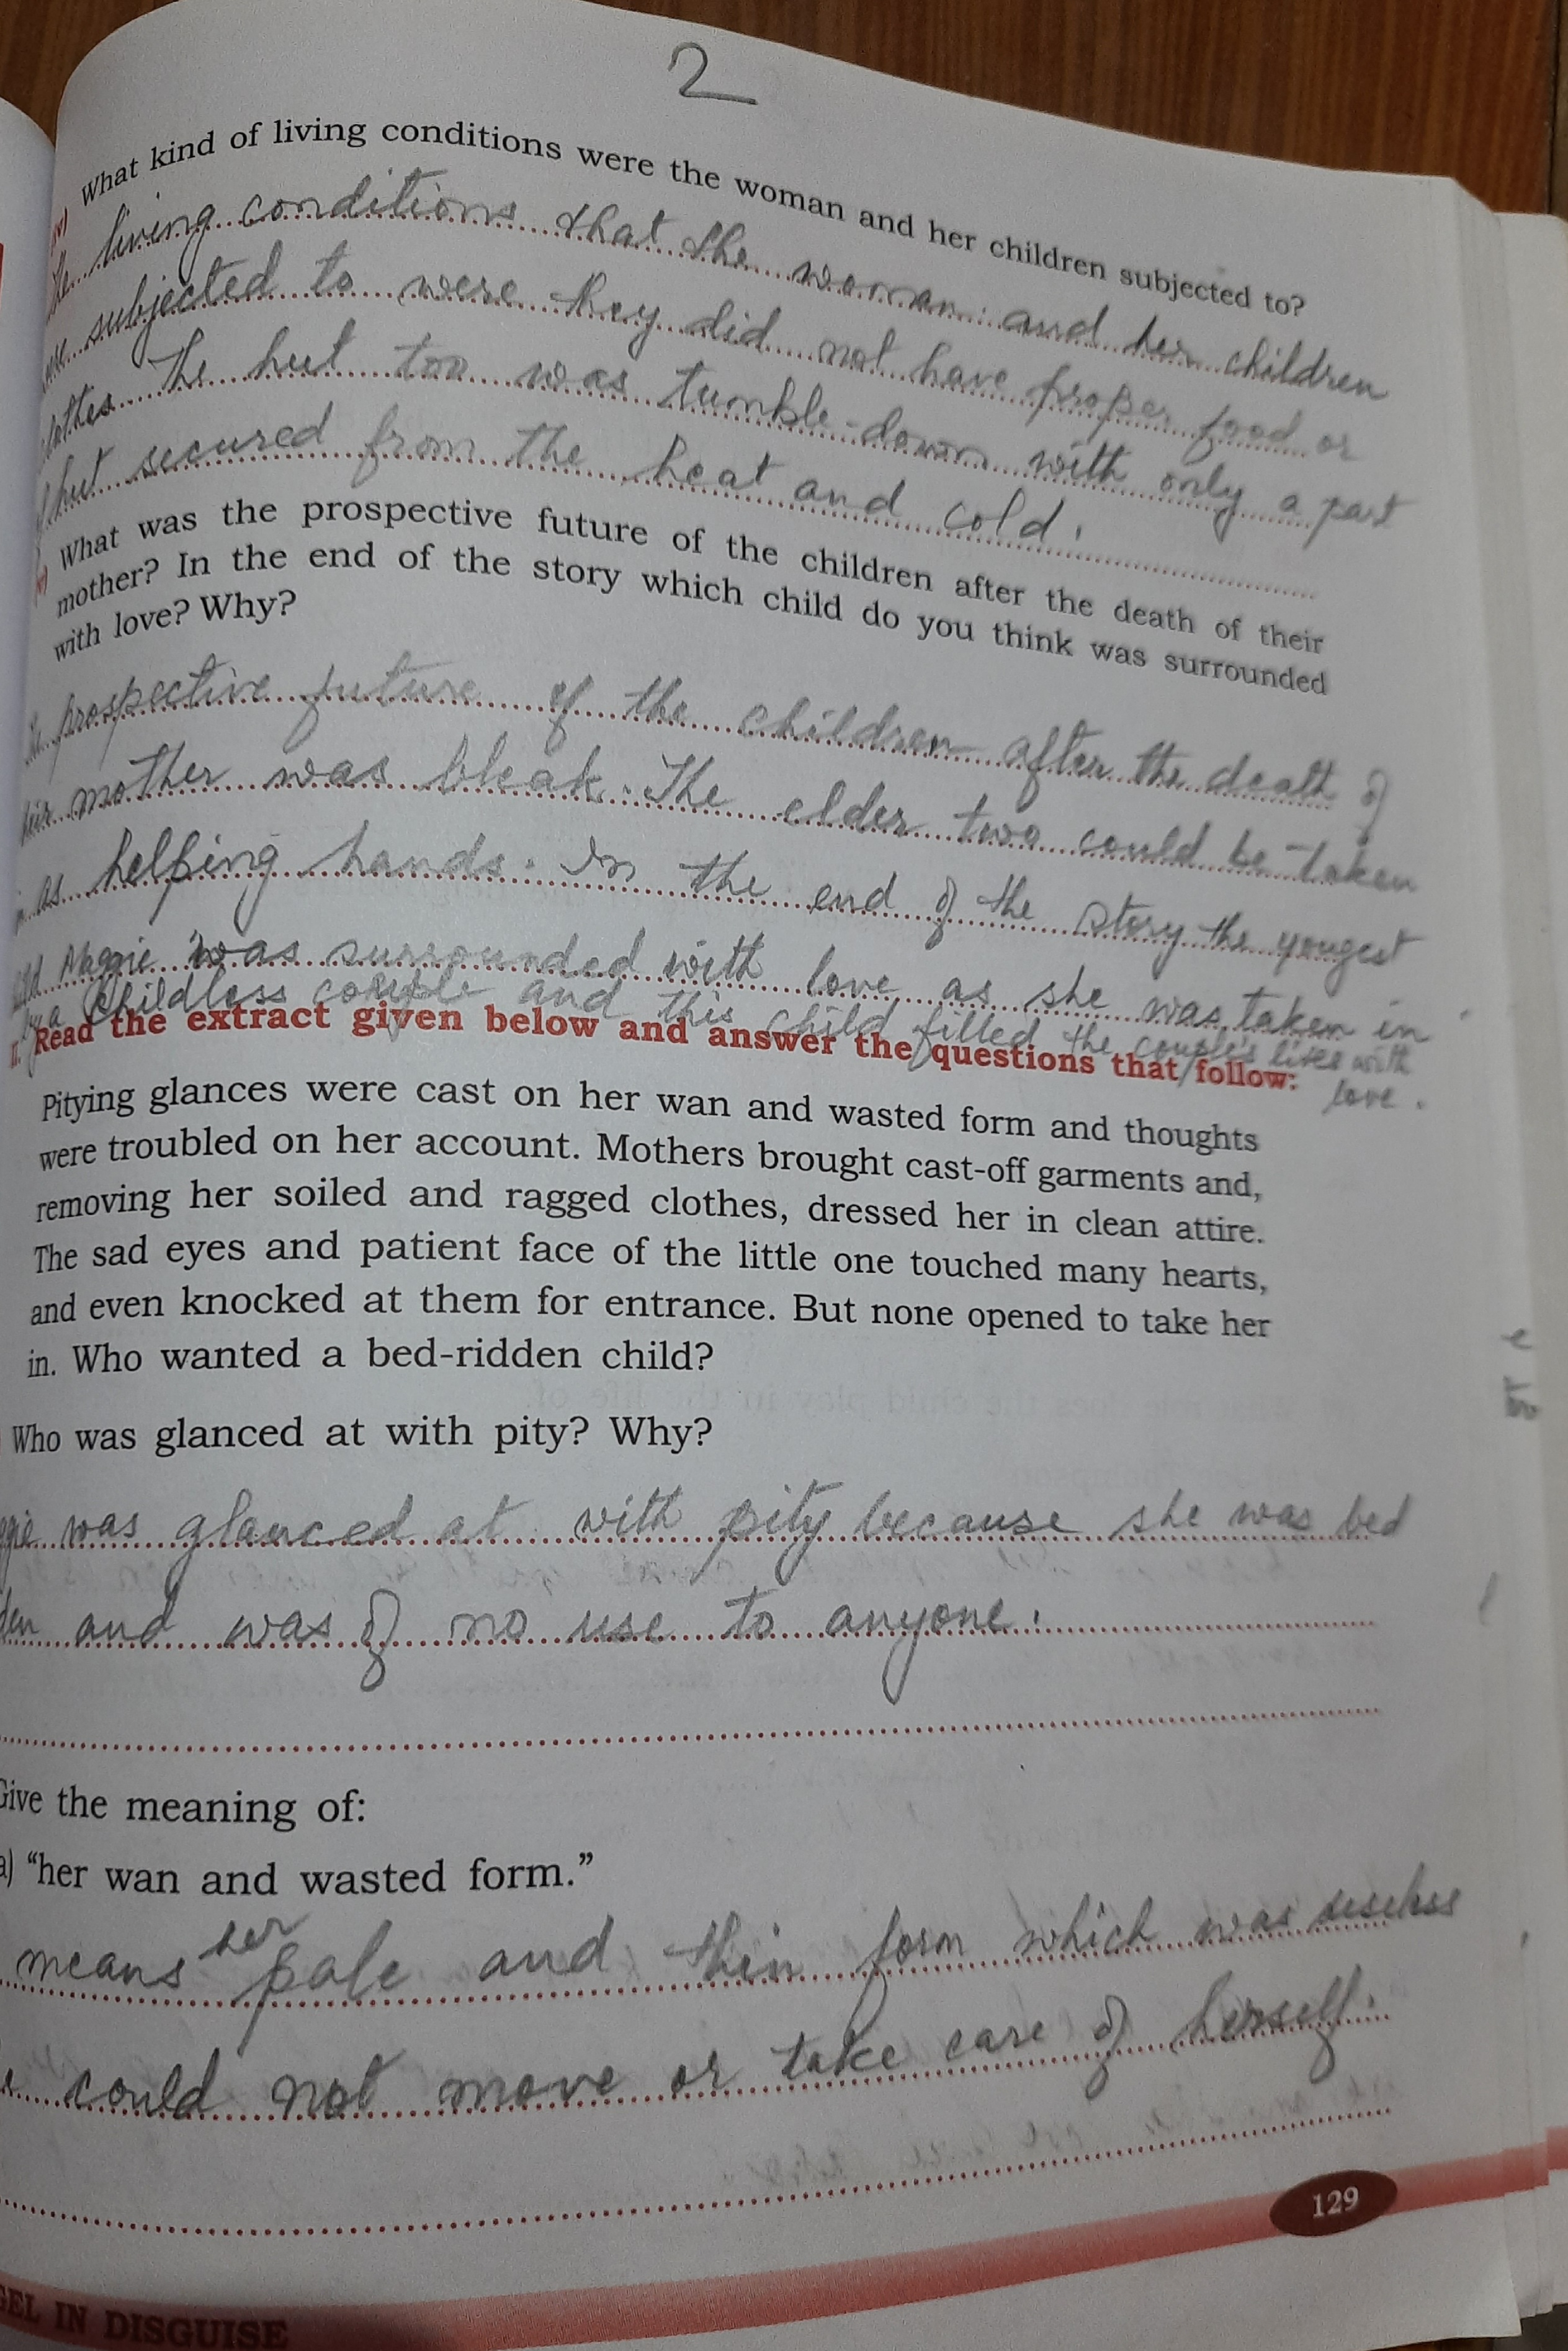 2
(iv) What kind of living conditions were the woman and her children subjected to?
The living conditions that the woman and her children
were subjected to were they did not have proper food or
clothes. The hut too was tumble-down with only a part
of hut secured from the heat and cold.
(v) What was the prospective future of the children after the death of their
mother? In the end of the story which child do you think was surrounded
with love? Why?
The prospective future of the children after the death of
their mother was bleak. The elder two could be taken
in as helping hands. In the end of the story the yougest
child Maggie was surrounded with love as she was taken in
by a childless couple and this child filled the couple's lives with
love.
II. Read the extract given below and answer the questions that follow:
Pitying glances were cast on her wan and wasted form and thoughts
were troubled on her account. Mothers brought cast-off garments and,
removing her soiled and ragged clothes, dressed her in clean attire.
The sad eyes and patient face of the little one touched many hearts,
and even knocked at them for entrance. But none opened to take her
in. Who wanted a bed-ridden child?
Who was glanced at with pity? Why?
ggie was glanced at with pity because she was bed
den and was of no use to anyone.
Give the meaning of:
a) “her wan and wasted form.”
means her pale and thin form which was useless
could not move or take care of herself.
129
GEL IN DISGUISE